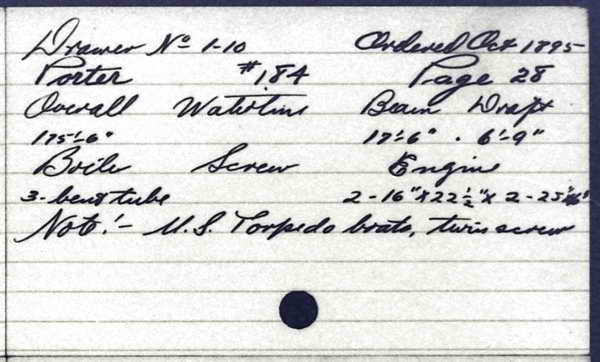 Drawer No 1-10 Ordered Oct 1895
Porter #184 Page 28
Overall Waterline Beam Draft
175'-6" 17'-6" . 6'-9"
Boiler Screw Engine
3- bent tube 2-16"x22½"x 2-25
Note:- U.S. Torpedo boats, twin screw